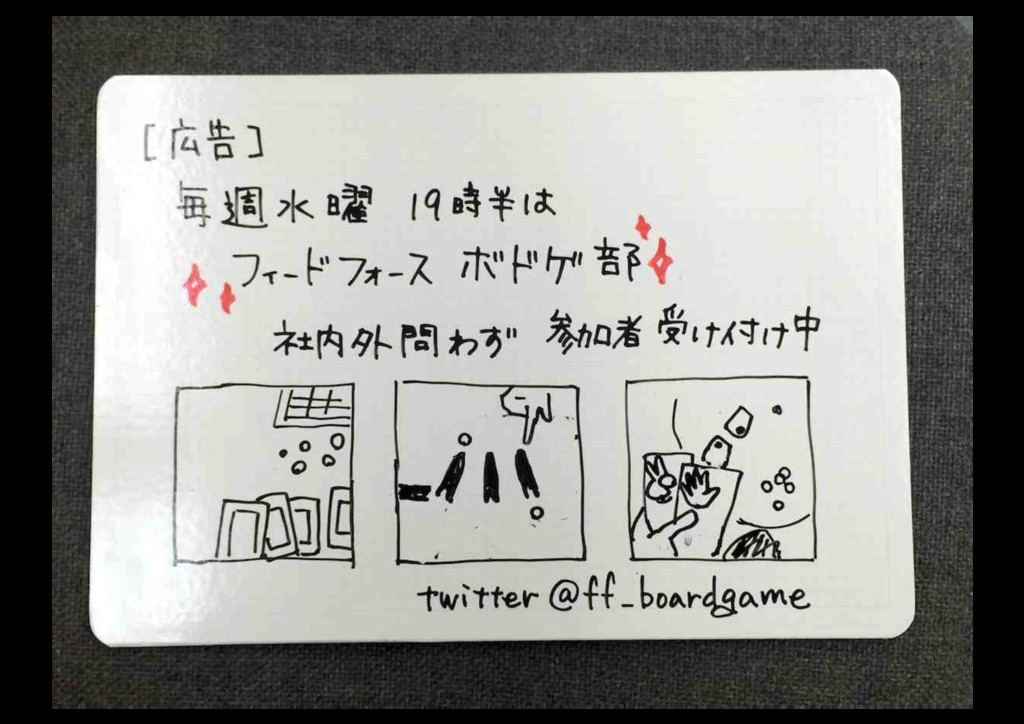 [広告]
毎週水曜 19時半は
フィードフォース ボドゲ部
社内外問わず 参加者受け付け中
twitter @ff_boardgame